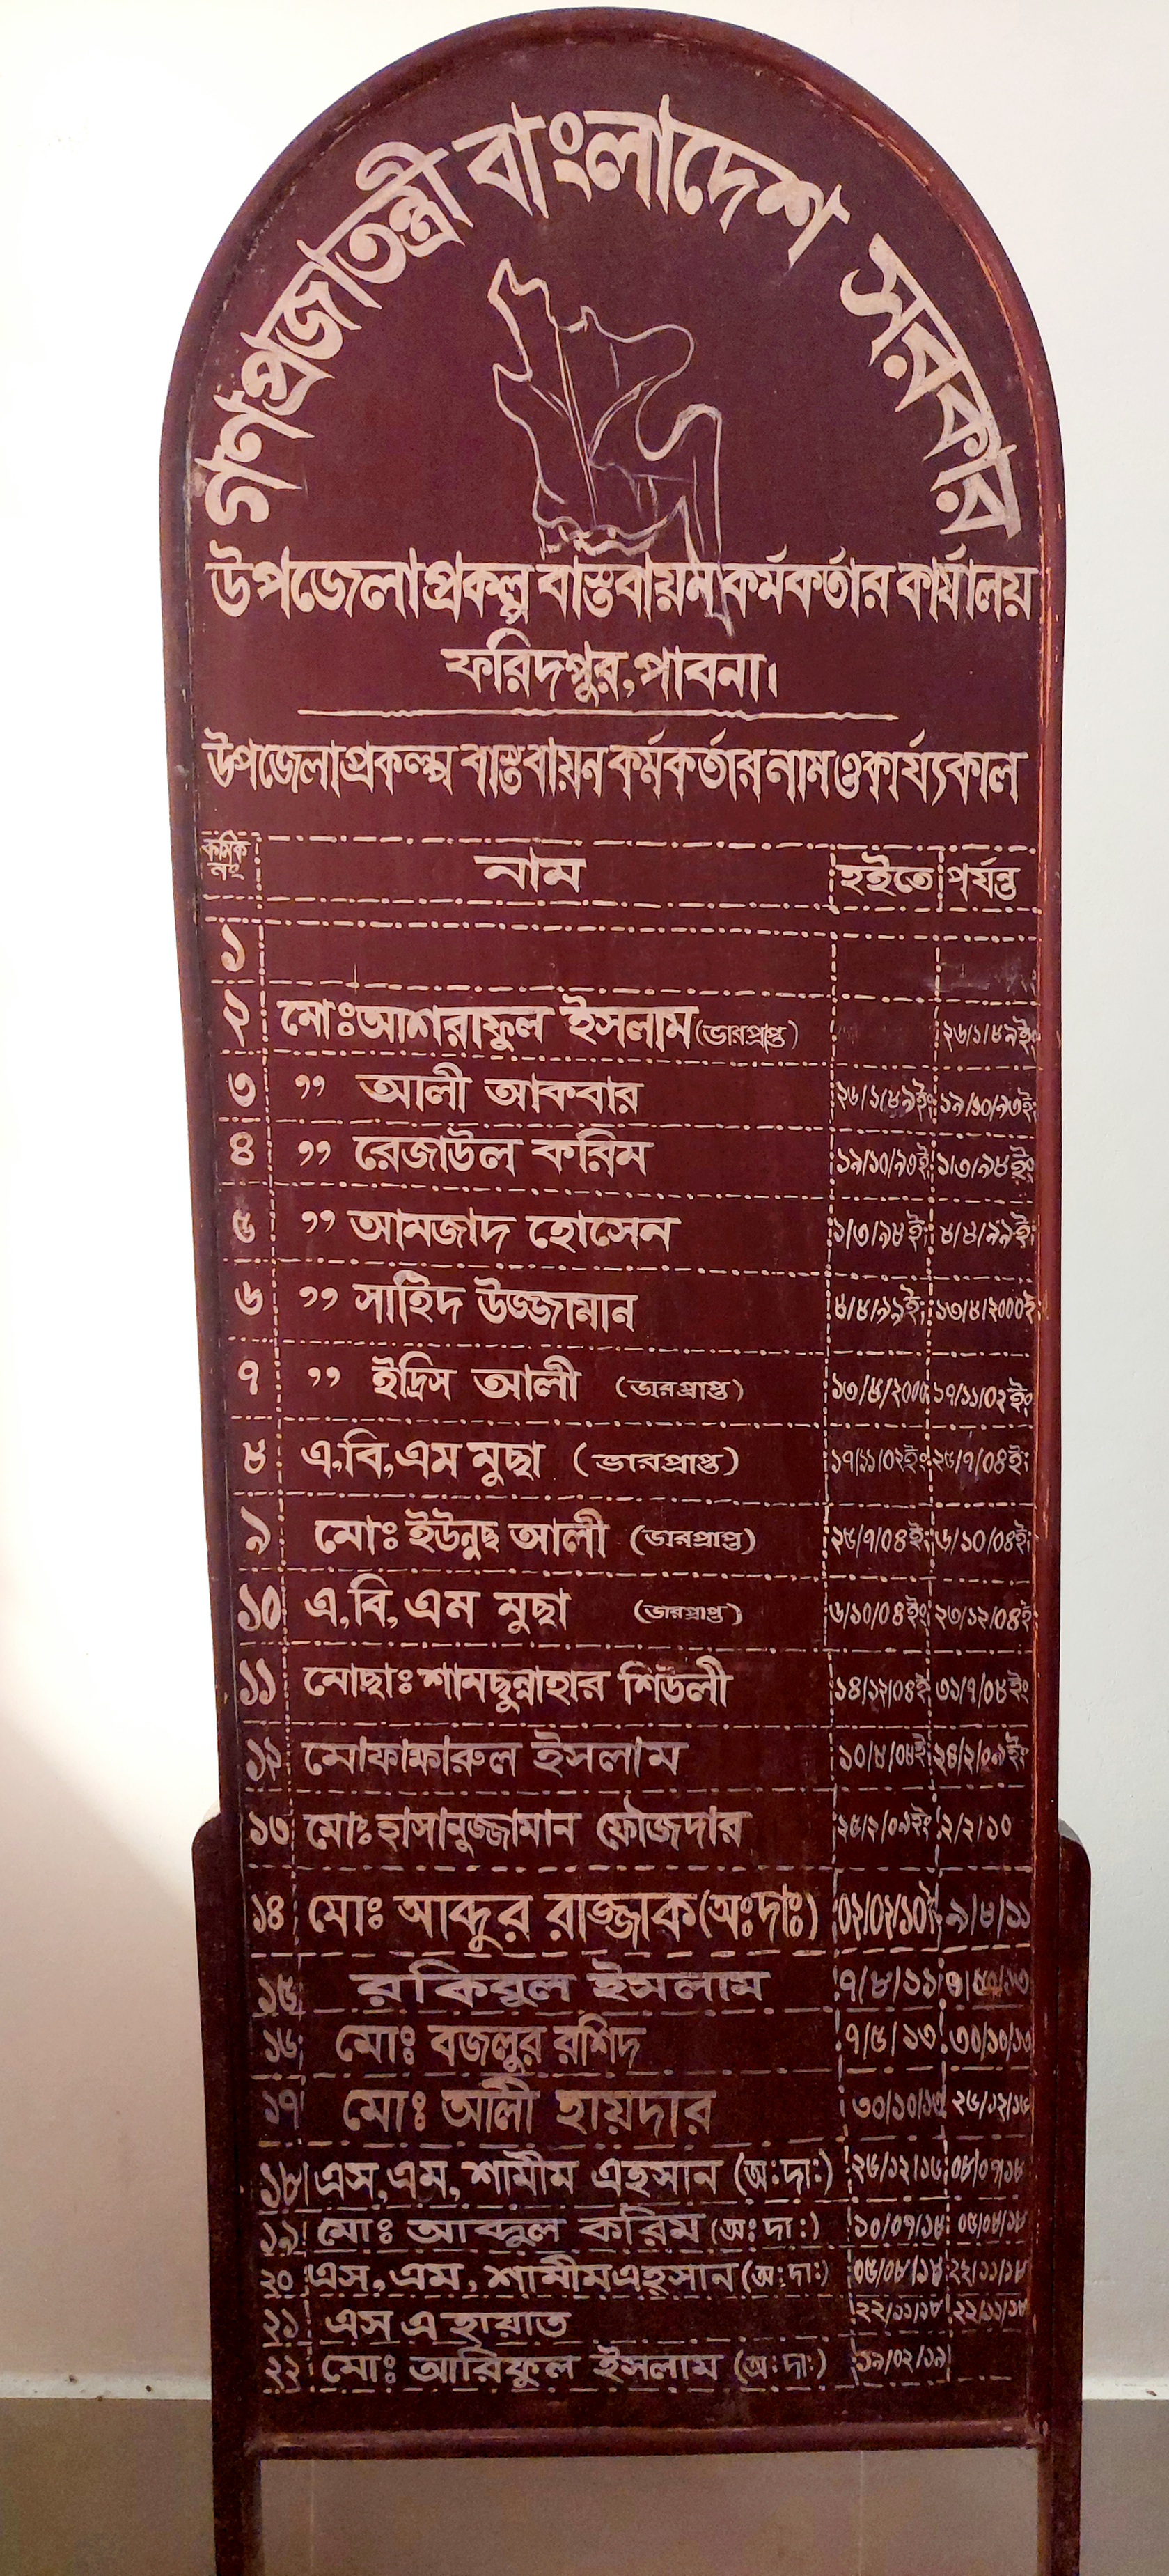 গণপ্রজাতন্ত্রী বাংলাদেশ সরকার
উপজেলা প্রকল্প বাস্তবায়ন কর্মকর্তার কার্যালয়
ফরিদপুর, পাবনা।
উপজেলা প্রকল্প বাস্তবায়ন কর্মকর্তার নাম ও কার্য্যকাল
ক্রমিক নং নাম হইতে পর্যন্ত
১
২ মোঃ আশরাফুল ইসলাম (ভারপ্রাপ্ত) ২৬/১/৮৯ইং
৩ ,, আলী আকবার ২৬/১/৮৯ইং ১৯/১০/৯৩ইং
৪ ,, রেজাউল করিম ১৯/১০/৯৩ইং ১/৩/৯৮ইং
৫ ,, আমজাদ হোসেন ১/৩/৯৮ইং ৪/৪/৯৯ইং
৬ ,, সাহিদ উজ্জামান ৪/৪/৯৯ইং ১৩/৪/২০০০ই
৭ ,, ইদ্রিস আলী (ভারপ্রাপ্ত) ১৩/৪/২০০০ ১৭/১১/০২ইং
৮ এ,বি,এম মুছা (ভারপ্রাপ্ত) ১৭/১১/০২ইং ২৫/৭/০৪ইং
৯ মোঃ ইউনুছ আলী (ভারপ্রাপ্ত) ২৫/৭/০৪ইং ৬/১০/০৪ইং
১০ এ,বি,এম মুছা (ভারপ্রাপ্ত) ৬/১০/০৪ইং ২৩/১২/০৪ই
১১ মোছাঃ শামছুন্নাহার শিউলী ১৪/১২/০৪ই ৩১/৭/০৮ইং
১২ মোফাক্ষারুল ইসলাম ১০/৮/০৮ই ২৪/২/০৯ইং
১৩ মোঃ হাসানুজ্জামান ফৌজদার ২৫/২/০৯ইং ২/২/১০
১৪ মোঃ আব্দুর রাজ্জাক (অঃদাঃ) ০২/০২/১০ই ৯/৮/১১
১৫ রকিবুল ইসলাম ৭/৮/১১
১৬ মোঃ বজলুর রশিদ ৭/৫/১৩ ৩০/১০/১৩
১৭ মোঃ আলী হায়দার ৩০/১০/১৩ ২৬/১২/১৬
১৮ এস,এম, শামীম এহসান (অ:দা:) ২৬/১২/১৬ ০৮/০৭/১৮
১৯ মোঃ আব্দুল করিম (অঃ দা:) ১০/০৭/১৮ ০৫/০৮/১৮
২০ এস,এম, শামীম এহসান (অঃ দা:) ০৫/০৮/১৮ ২২/১১/১৮
২১ এস এ হায়াত ২২/১১/১৮ ২২/১১/১৮
২২ মোঃ আরিফুল ইসলাম (অ:দা:) ১৯/০২/১৯